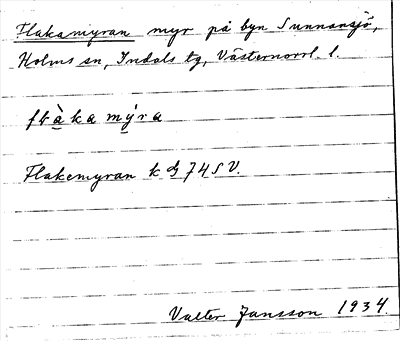 Flakamyran myr på byn Sunnansjö,
Holms sn, Indals tg, Västernorrl. l.
flàka mýra
Flakemyran k 74 SV.
Valter Jansson 1934.